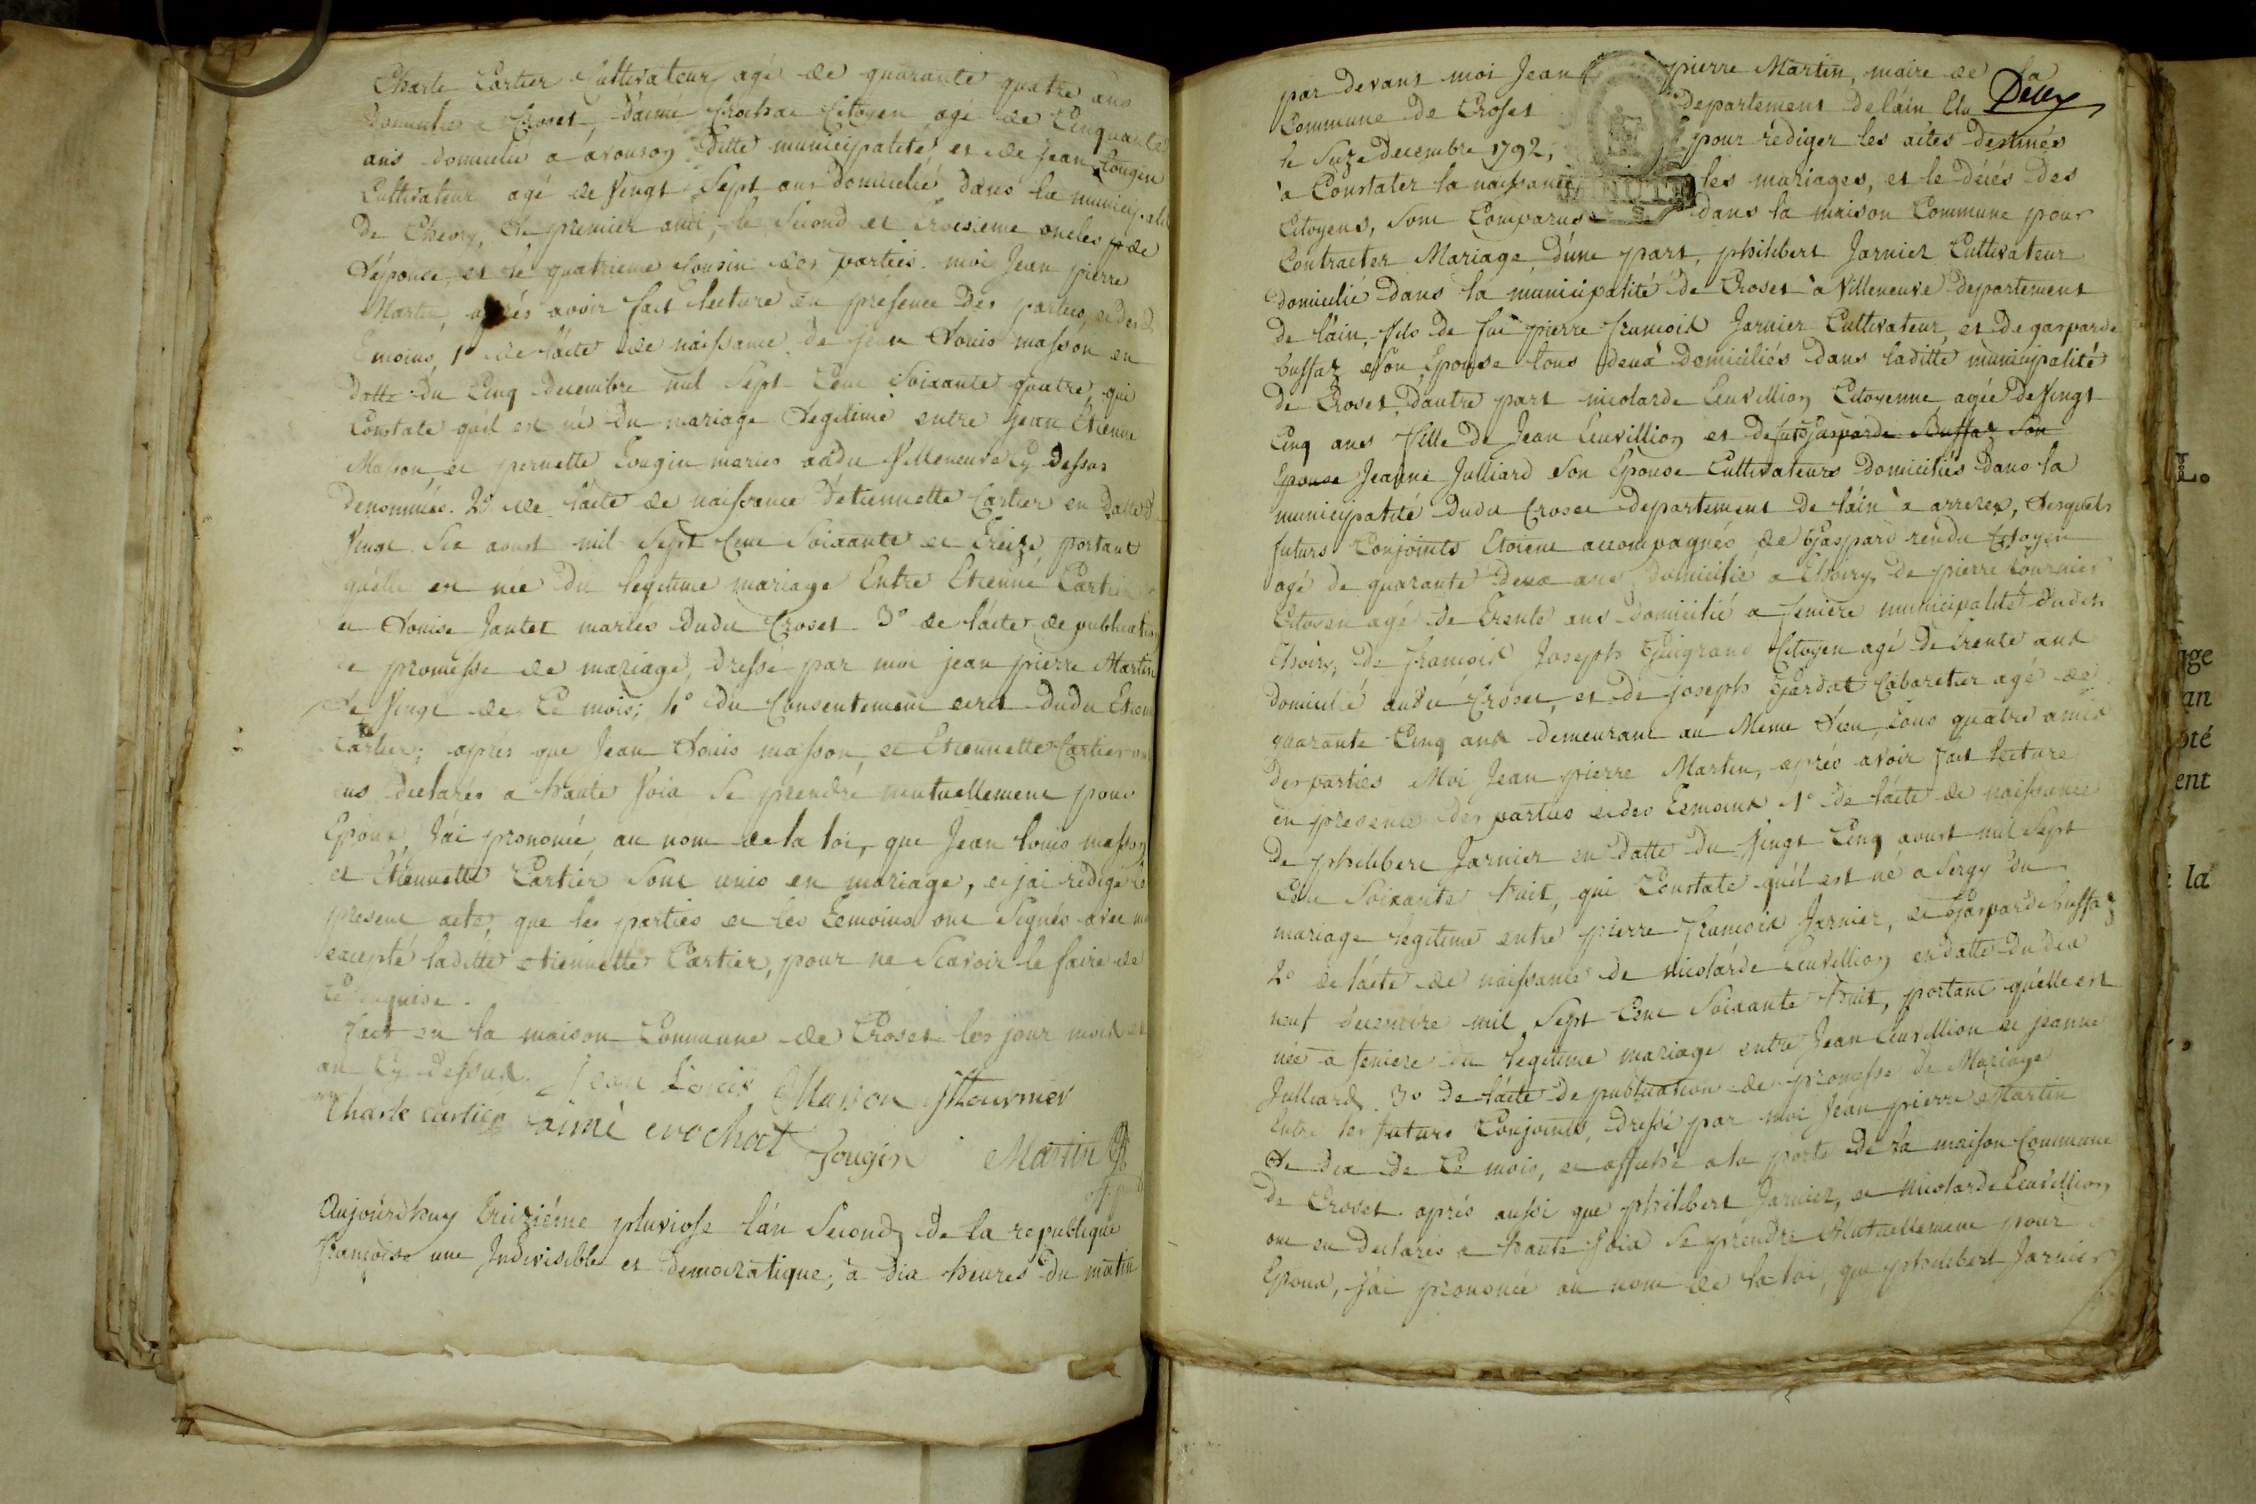 Charle Cartier Cultivateur agé de quarante quatre ans
Domicilié a Croset, D'aimé Crochat Citoyen agé de Cinquante
ans domicilié a avouson ditte municipalité, et de Jean Gougin
Cultivateur agé de Vingt Sept ans domicilié dans la municipalité
De Chevry, Le premier ami, le Second et Troisieme oncles de
L'épouse, et le quatrieme Cousin des parties. moi Jean pierre
Martin, après avoir fait lecture en présence des parties, et des
Temoins, 1° de l'acte de naissance de jean Louis masson en
Datte du Cinq decembre mil Sept Cent Soixante quatre, qui
Constate qu'il est né du mariage Legitime entre jean Etienne
Masson, et pernette Gougin mariés audit Villeneuve Cy Dessus
Denommés. 2° de l'acte de naissance D'etiennette Cartier en Datte du
Vingt Six aoust mil Sept Cent Soixante et Treize, portant
quelle est née du legitime mariage Entre Etienne Cartier
et Louise Jantet mariés dudit Croset. 3° de l'acte de publication
de promesse de mariage, dressé par moi jean pierre Martin
Le Vingt de Ce mois; 4° du Consentement ecrit dudit Etienne
Cartier; apres que Jean Louis masson, et Etiennette Cartier ont
eus declarés a haute Voix Se prendre mutuellement pour
Epoux, J'ai prononcé, au nom de la loi, que Jean Louis masson
et Etiennette Cartier Sont unis en mariage, et j'ai rédigé le
present acte, que les parties et les Temoins ont Signés avec moi
excepté laditte etiennette Cartier, pour ne Scavoir le faire de
Ce requise.
Fait en la maison Commune de Croset les jour mois et
an Cy dessus. Jean Louis Masson Fournier
Charle cartier aimé crochat Gougin Martin
Aujourdhuy Treiziéme pluviose l'an Second de la republique
francoise une Indivisible et democratique, à dix heures du matin
Deux
par devant moi Jean pierre Martin, maire de la
Commune de Croset Departement de l'ain Elu
le Seize decembre 1792, pour rédiger les actes destinés
a Constater la naissance, les mariages, et le décés des
Citoyens, Sont Comparus dans la maison Commune pour
Contracter Mariage, d'une part, philibert Jarnier Cultivateur
domicilié dans la municipalité de Croset à Villeneuve departement
de l'ain, fils de feu pierre francois Jarnier Cultivateur, et de gasparde
buffaz Son Epouse tous deux domiciliés dans laditte municipalité
De Croset, D'autre part nicolarde Cuvillion Citoyenne agée de Vingt
Cinq ans fille de Jean Cuvillion et de feu Gasparde Buffaz Son
Epouse Jeanne Julliard Son Epouse Cultivateurs domiciliés dans la
municipalité dudit Croset departement de l'ain a arrelex, Lesquels
futurs Conjoints Etoient accompagnés de Gaspard rendu Citoyen
agé de quarante deux ans domicilié a Thoiry, de pierre Fournier
Citoyen agé de Trente ans domicilié a feniere municipalité dudit
Thoiry, De francois Joseph Citoyen agé de Trente ans
domicilié audit Croset, et de joseph Gardat Cabaretier agé de
quarante Cinq ans demeurant au Meme Lieu, Tous quatre amis
Des parties Moi Jean pierre Martin, aprés avoir fait lecture
en presence des parties et des Temoins 1° de l'acte de naissance
De philibert Jarnier en datte du Vingt Cinq aoust mil Sept
Cent Soixante huit, qui Constate qu'il est né a Sergy du
mariage legitime entre pierre francois Jarnier, et Gasparde buffaz
2° de l'acte de naissance de Nicolarde Cuvillion en datte du dix
neuf decembre mil Sept Cent Soixante huit, portant quelle est
née a feniere du legitime mariage entre Jean Cuvillion et jeanne
Julliard. 3° De l'acte de publication de promesse de Mariage
Entre les futurs Conjoints, dressé par moi Jean pierre Martin
Le dix de Ce mois, et affiché a la porte de la maison Commune
De Croset. aprés aussi que philibert Jarnier, et Nicolarde Cuvillion
ont eu declarés a haute Voix Se prendre Mutuellement pour
Epoux, j'ai prononcé au nom de la loi, que philibert Jarnier